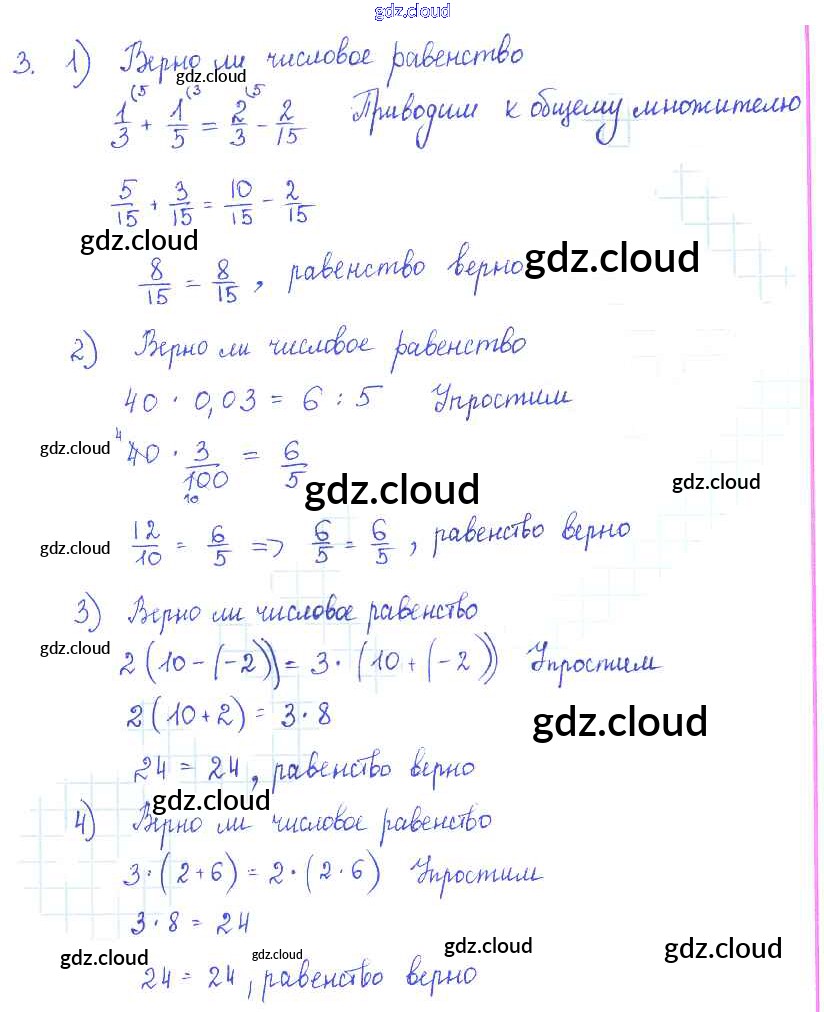 gdz.cloud
3. 1) Верно ли числовое равенство
gdz.cloud
1/3 (5 + 1/5 (3 = 2/3 (5 - 2/15 Приводим к общему множителю
5/15 + 3/15 = 10/15 - 2/15
gdz.cloud
8/15 = 8/15, равенство верно
gdz.cloud
2) Верно ли числовое равенство
40 · 0,03 = 6 : 5 Упростим
gdz.cloud
4 40 · 3/100 10 = 6/5
gdz.cloud
gdz.cloud
gdz.cloud
12/10 = 6/5 => 6/5 = 6/5, равенство верно
3) Верно ли числовое равенство
gdz.cloud
2(10-(-2)) = 3·(10+(-2)) Упростим
2(10+2) = 3·8
gdz.cloud
24 = 24, равенство верно
gdz.cloud
4) Верно ли числовое равенство
3·(2+6) = 2·(2·6) Упростим
3·8 = 24
gdz.cloud gdz.cloud gdz.cloud gdz.cloud
24 = 24, равенство верно